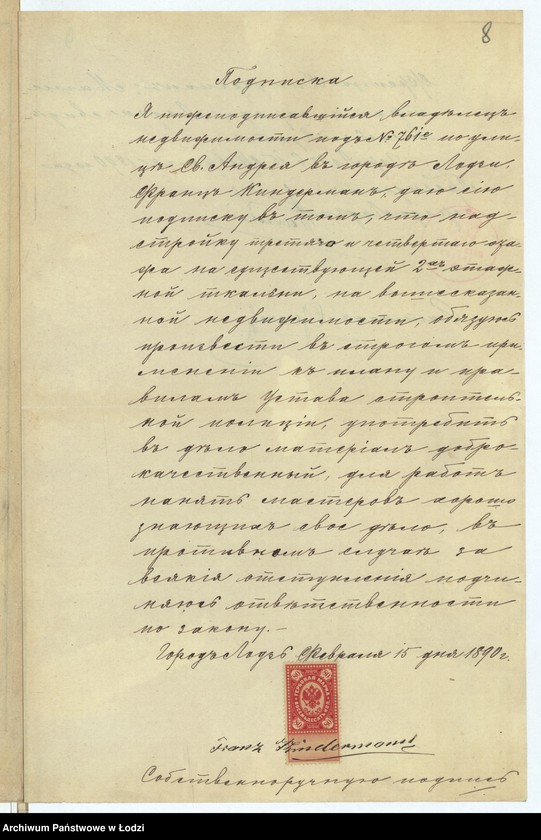 8
Подписка
Я нижеподписавшійся владѣлецъ
недвижимости подъ № 761е по ули-
цѣ Св. Андрея въ городѣ Лодзи,
Францъ Киндерманъ, даю сію
подписку въ томъ, что над-
стройку третяго и четвертаго эта-
жа на существующей 2хъ этаж-
ной ткальни, на вышесказан-
ной недвижимости, обязуюсь
произвести въ строгомъ при-
мененіи къ плану и пра-
виламъ Устава строитель-
ной полиціи, употребить
въ дѣло матеріалъ добро-
качественный, для работъ
нанять мастеровъ хорошо
знающихъ свое дѣло, въ
противномъ случаѣ за
всякія отступленія подчи-
няюсь отвѣтственности
по закону.—
Городъ Лодзь Февраля 15 дня 1890 г.
80 80
ГЕРБОВАЯ МАРКА
ВОСЕМЬДЕСЯТЪ КОП.
80 80
Franz Kindermann
Собственноручную подпись
Archiwum Państwowe w Łodzi